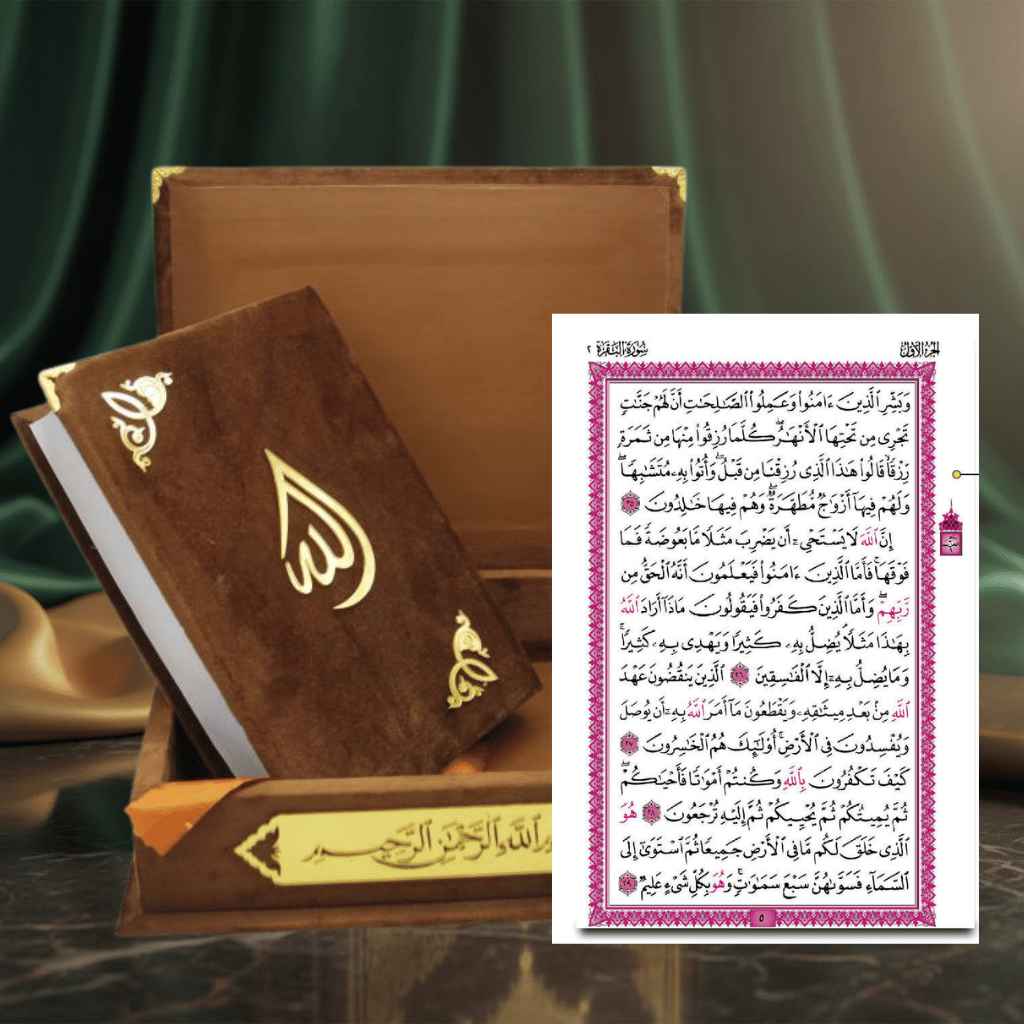 الله
بسم الله الرحمن الرحيم
الجزء الأول
سورة البقرة ٢
وَبَشِّرِ الَّذِينَ ءَامَنُوا وَعَمِلُوا الصَّـٰلِحَـٰتِ أَنَّ لَهُمْ جَنَّـٰتٍ
تَجْرِى مِن تَحْتِهَا الْأَنْهَـٰرُ ۖ كُلَّمَا رُزِقُوا مِنْهَا مِن ثَمَرَةٍ
رِّزْقًا ۙ قَالُوا هَـٰذَا الَّذِى رُزِقْنَا مِن قَبْلُ ۖ وَأُتُوا بِهِۦ مُتَشَـٰبِهًا ۖ
وَلَهُمْ فِيهَآ أَزْوَٰجٌ مُّطَهَّرَةٌ ۖ وَهُمْ فِيهَا خَـٰلِدُونَ ٢٥
إِنَّ اللَّهَ لَا يَسْتَحْىِۦٓ أَن يَضْرِبَ مَثَلًا مَّا بَعُوضَةً فَمَا
فَوْقَهَا ۚ فَأَمَّا الَّذِينَ ءَامَنُوا فَيَعْلَمُونَ أَنَّهُ الْحَقُّ مِن
رَّبِّهِمْ ۖ وَأَمَّا الَّذِينَ كَفَرُوا فَيَقُولُونَ مَاذَآ أَرَادَ اللَّهُ
بِهَـٰذَا مَثَلًا ۘ يُضِلُّ بِهِۦ كَثِيرًا وَيَهْدِى بِهِۦ كَثِيرًا ۚ
وَمَا يُضِلُّ بِهِۦٓ إِلَّا الْفَـٰسِقِينَ ٢٦ الَّذِينَ يَنقُضُونَ عَهْدَ
اللَّهِ مِنۢ بَعْدِ مِيثَـٰقِهِۦ وَيَقْطَعُونَ مَآ أَمَرَ اللَّهُ بِهِۦٓ أَن يُوصَلَ
وَيُفْسِدُونَ فِى الْأَرْضِ ۚ أُولَـٰٓئِكَ هُمُ الْخَـٰسِرُونَ ٢٧
كَيْفَ تَكْفُرُونَ بِاللَّهِ وَكُنتُمْ أَمْوَٰتًا فَأَحْيَـٰكُمْ ۖ
ثُمَّ يُمِيتُكُمْ ثُمَّ يُحْيِيكُمْ ثُمَّ إِلَيْهِ تُرْجَعُونَ ٢٨ هُوَ
الَّذِى خَلَقَ لَكُم مَّا فِى الْأَرْضِ جَمِيعًا ثُمَّ اسْتَوَىٰٓ إِلَى
السَّمَآءِ فَسَوَّىٰهُنَّ سَبْعَ سَمَـٰوَٰتٍ ۚ وَهُوَ بِكُلِّ شَىْءٍ عَلِيمٌ ٢٩
٥